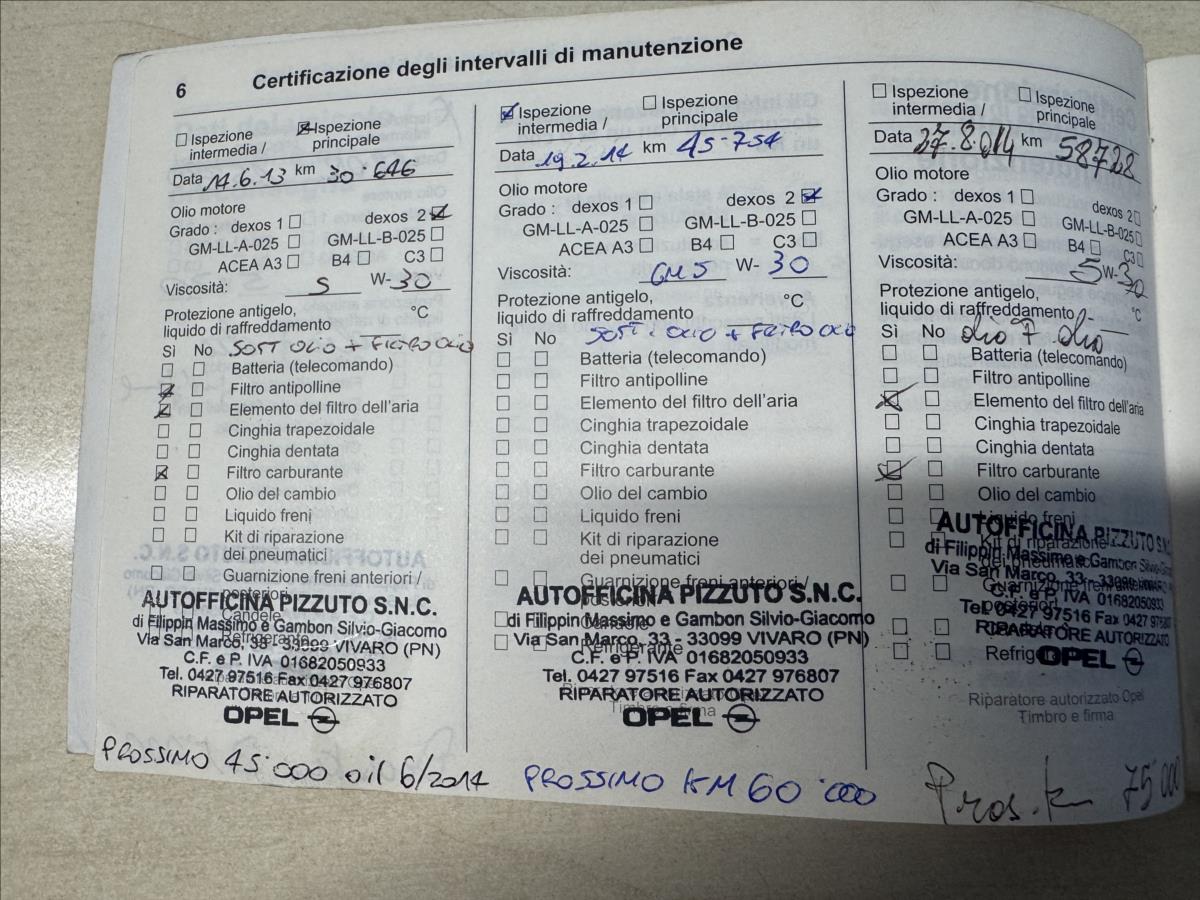 6 Certificazione degli intervalli di manutenzione
Ispezione intermedia / Ispezione principale
Data 14.6.13 km 30.646
Olio motore
Grado : dexos 1 dexos 2
GM-LL-A-025 GM-LL-B-025
ACEA A3 B4 C3
Viscosità: 5 W- 30
Protezione antigelo, °C
liquido di raffreddamento
Sì No SOST OLIO + FILTRO OLIO
Batteria (telecomando)
Filtro antipolline
Elemento del filtro dell'aria
Cinghia trapezoidale
Cinghia dentata
Filtro carburante
Olio del cambio
Liquido freni
Kit di riparazione
dei pneumatici
Guarnizione freni anteriori /
posteriori
Candele
Refrigerante
AUTOFFICINA PIZZUTO S.N.C.
di Filippin Massimo e Gambon Silvio-Giacomo
Via San Marco, 33 - 33099 VIVARO (PN)
C.F. e P. IVA 01682050933
Tel. 0427 97516 Fax 0427 976807
RIPARATORE AUTORIZZATO
OPEL
PROSSIMO 45.000 oil 6/2014
Ispezione intermedia / Ispezione principale
Data 19.2.14 km 45.754
Olio motore
Grado : dexos 1 dexos 2
GM-LL-A-025 GM-LL-B-025
ACEA A3 B4 C3
Viscosità: GM5 W- 30
Protezione antigelo, °C
liquido di raffreddamento
Sì No SOST. OLIO + FILTRO OLIO
Batteria (telecomando)
Filtro antipolline
Elemento del filtro dell'aria
Cinghia trapezoidale
Cinghia dentata
Filtro carburante
Olio del cambio
Liquido freni
Kit di riparazione
dei pneumatici
Guarnizione freni anteriori /
posteriori
Candele
Refrigerante
AUTOFFICINA PIZZUTO S.N.C.
di Filippin Massimo e Gambon Silvio-Giacomo
Via San Marco, 33 - 33099 VIVARO (PN)
C.F. e P. IVA 01682050933
Tel. 0427 97516 Fax 0427 976807
RIPARATORE AUTORIZZATO
Timbro e firma
OPEL
PROSSIMO KM 60.000
Ispezione intermedia / Ispezione principale
Data 27.8.014 km 58728
Olio motore
Grado : dexos 1 dexos 2
GM-LL-A-025 GM-LL-B-025
ACEA A3 B4 C3
Viscosità: 5 W- 30
Protezione antigelo,
liquido di raffreddamento °C
Sì No olio F. olio
Batteria (telecomando)
Filtro antipolline
Elemento del filtro dell'aria
Cinghia trapezoidale
Cinghia dentata
Filtro carburante
Olio del cambio
Liquido freni
Kit di riparazione
dei pneumatici
Guarnizione freni anteriori
posteriori
Candele
Refrig
AUTOFFICINA PIZZUTO S.N.
di Filippin Massimo e Gambon Silvio-Giacom
Via San Marco, 33 - 33099 VIVARO
C.F. e P. IVA 01682050933
Tel. 0427 97516 Fax 0427 976807
RIPARATORE AUTORIZZATO
OPEL
Riparatore autorizzato Opel
Timbro e firma
Pros. km 75000